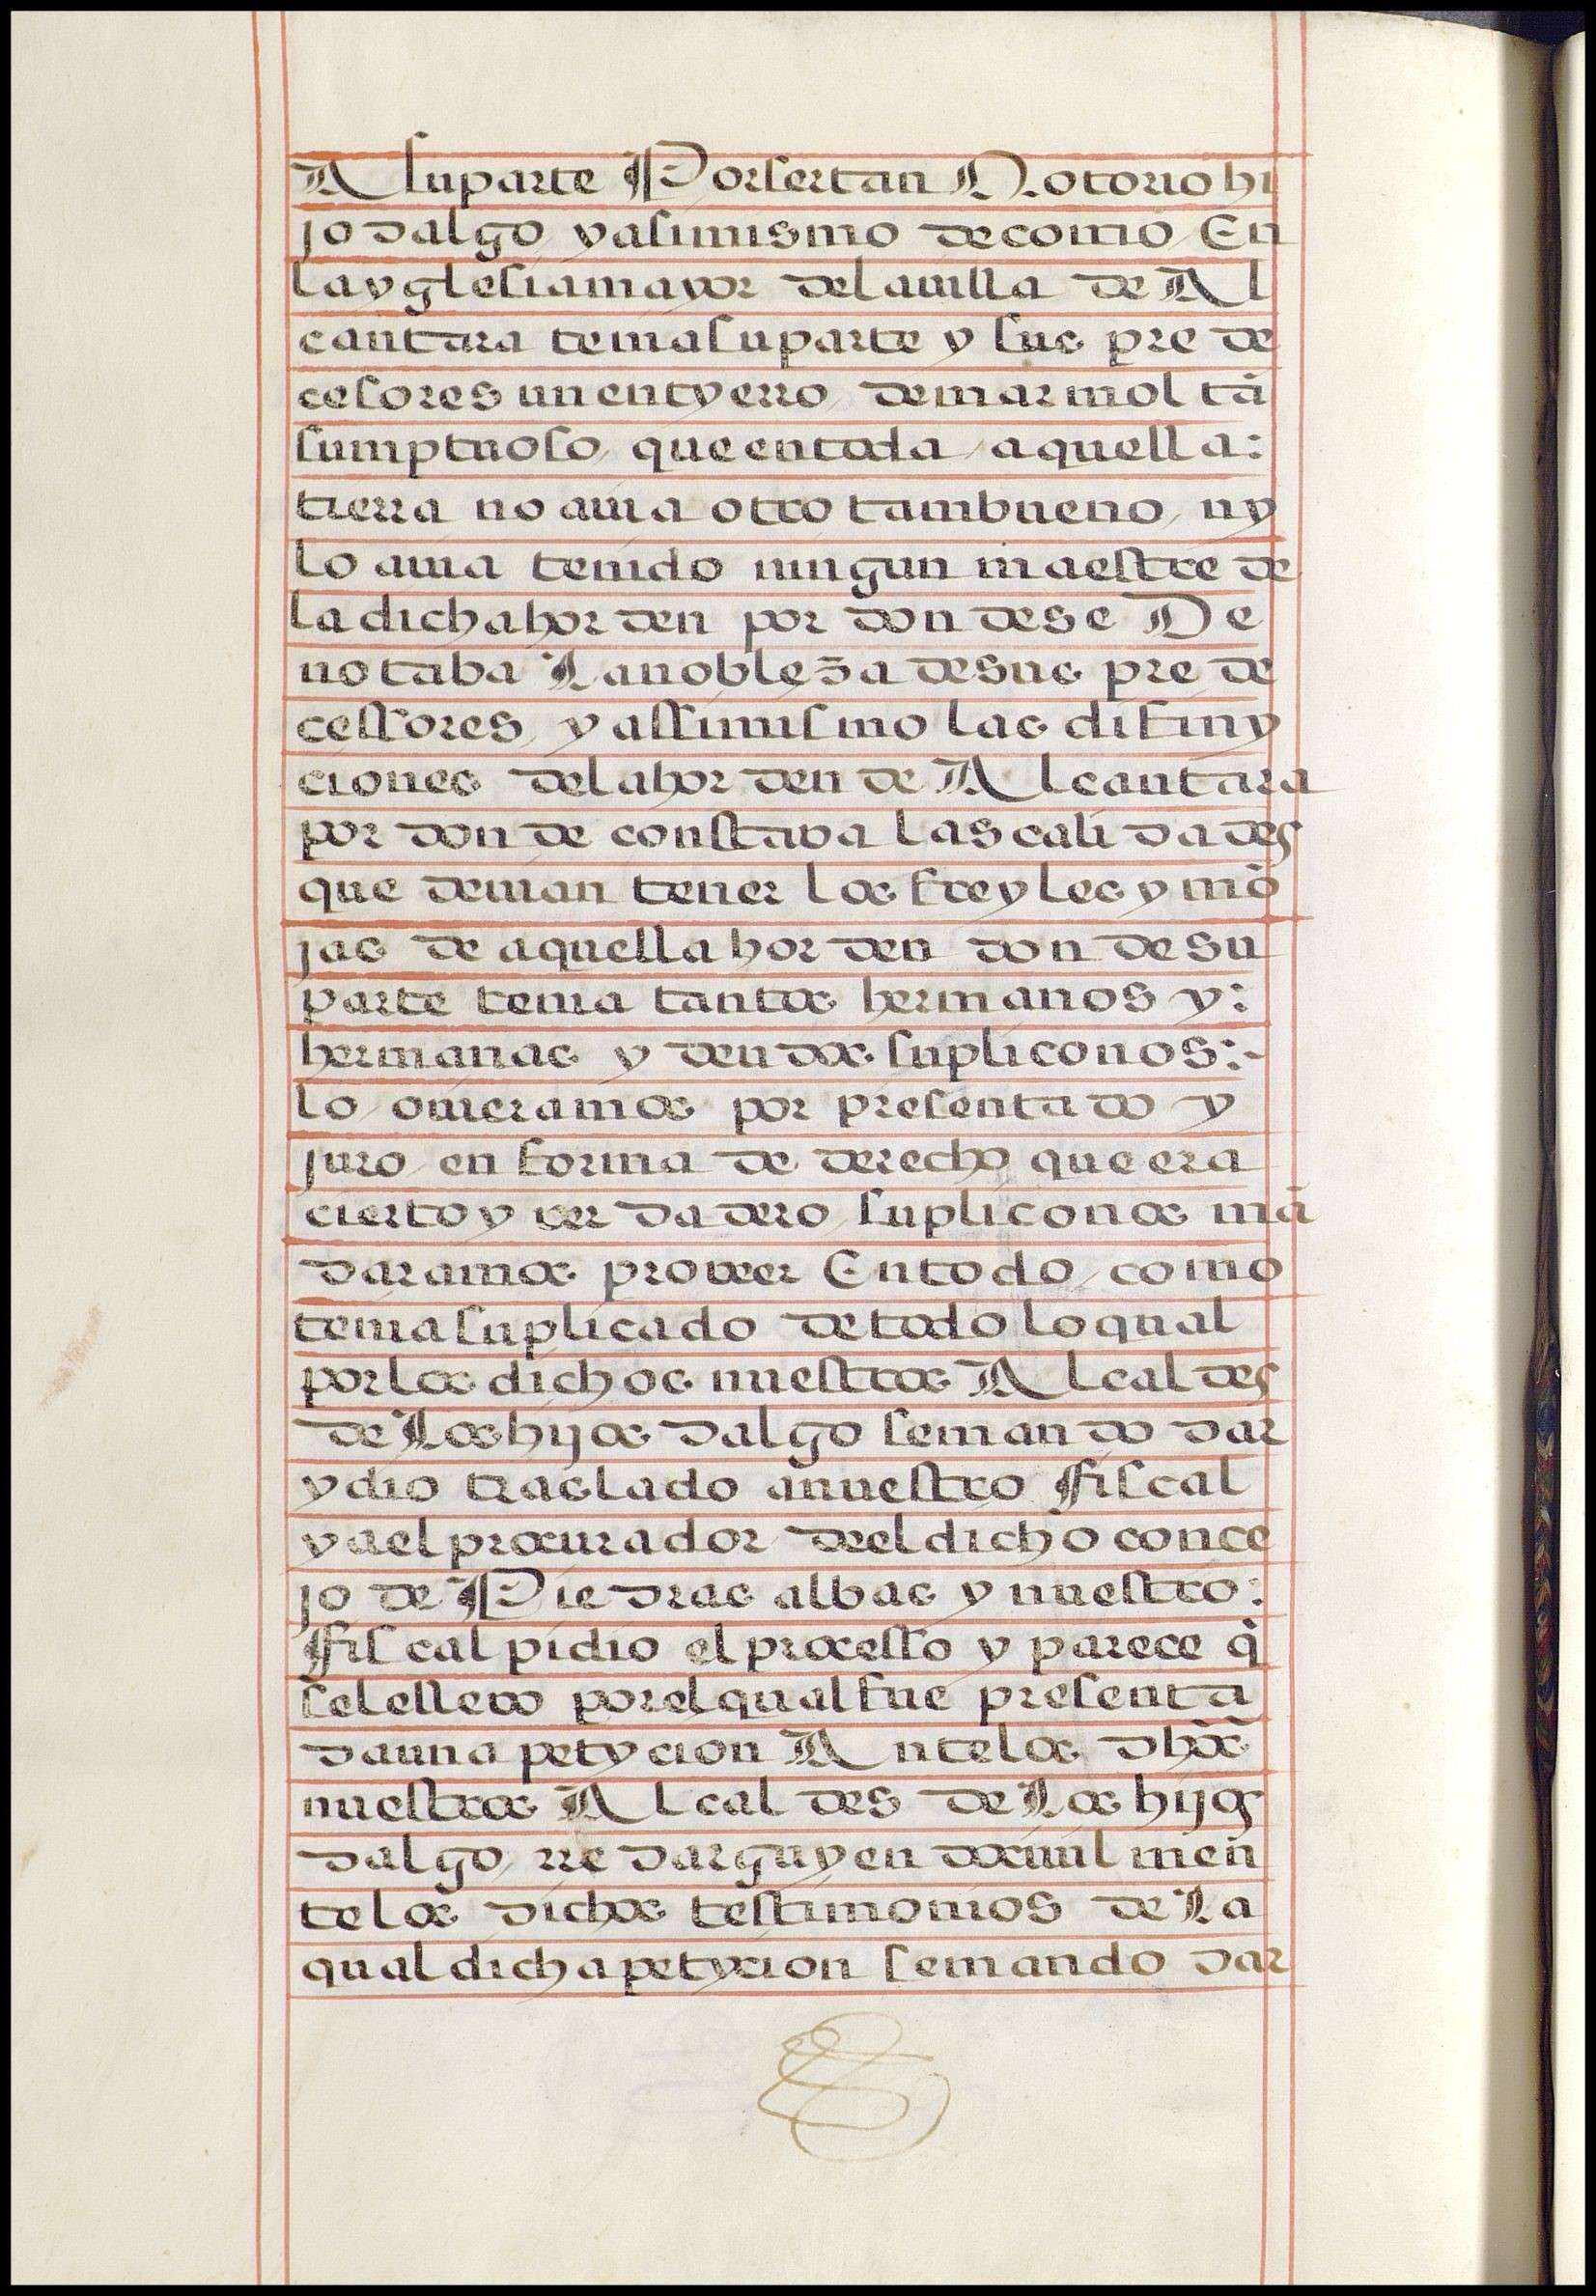 A su parte Por ser tan Notorio hi
jo dalgo y asimismo de como En
la yglesia mayor de la uilla de Al
cantara tenia su parte y sus pre de
cesores un entyerro de marmol tā
sumptuoso que en toda aquella:
tierra no auia otro tam bueno ny
lo auia tenido ningun maestre de
la dicha horden por donde se De
notaba La nobleza de sus pre de
cessores y assimismo las difiny
ciones de la horden de Alcantara
por donde constaua las calidades
que deuian tener los freyles y mō
jas de aquella horden donde su
parte tenia tantos hermanos y:
hermanas y deudos suplico nos:-
lo ouieramos por presentado y
juro en forma de derecho que era
cierto y uerdadero suplico nos mā
daramos proueer En todo como
tenia suplicado de todo lo qual
por los dichos nuestros Alcaldes
de Los hijos dalgo se mando dar
y dio traslado a nuestro ffiscal
y a el procurador de el dicho conce
jo de Piedras albas y nuestro:
ffiscal pidio el processo y parece q̄
se le lleuo por el qual fue presenta
da una petycion Ante los dhōs
nuestros Alcaldes de Los hijos
dalgo rredarguyendo ciuilmen
te los dichos testimonios de La
qual dicha petycion se mando dar